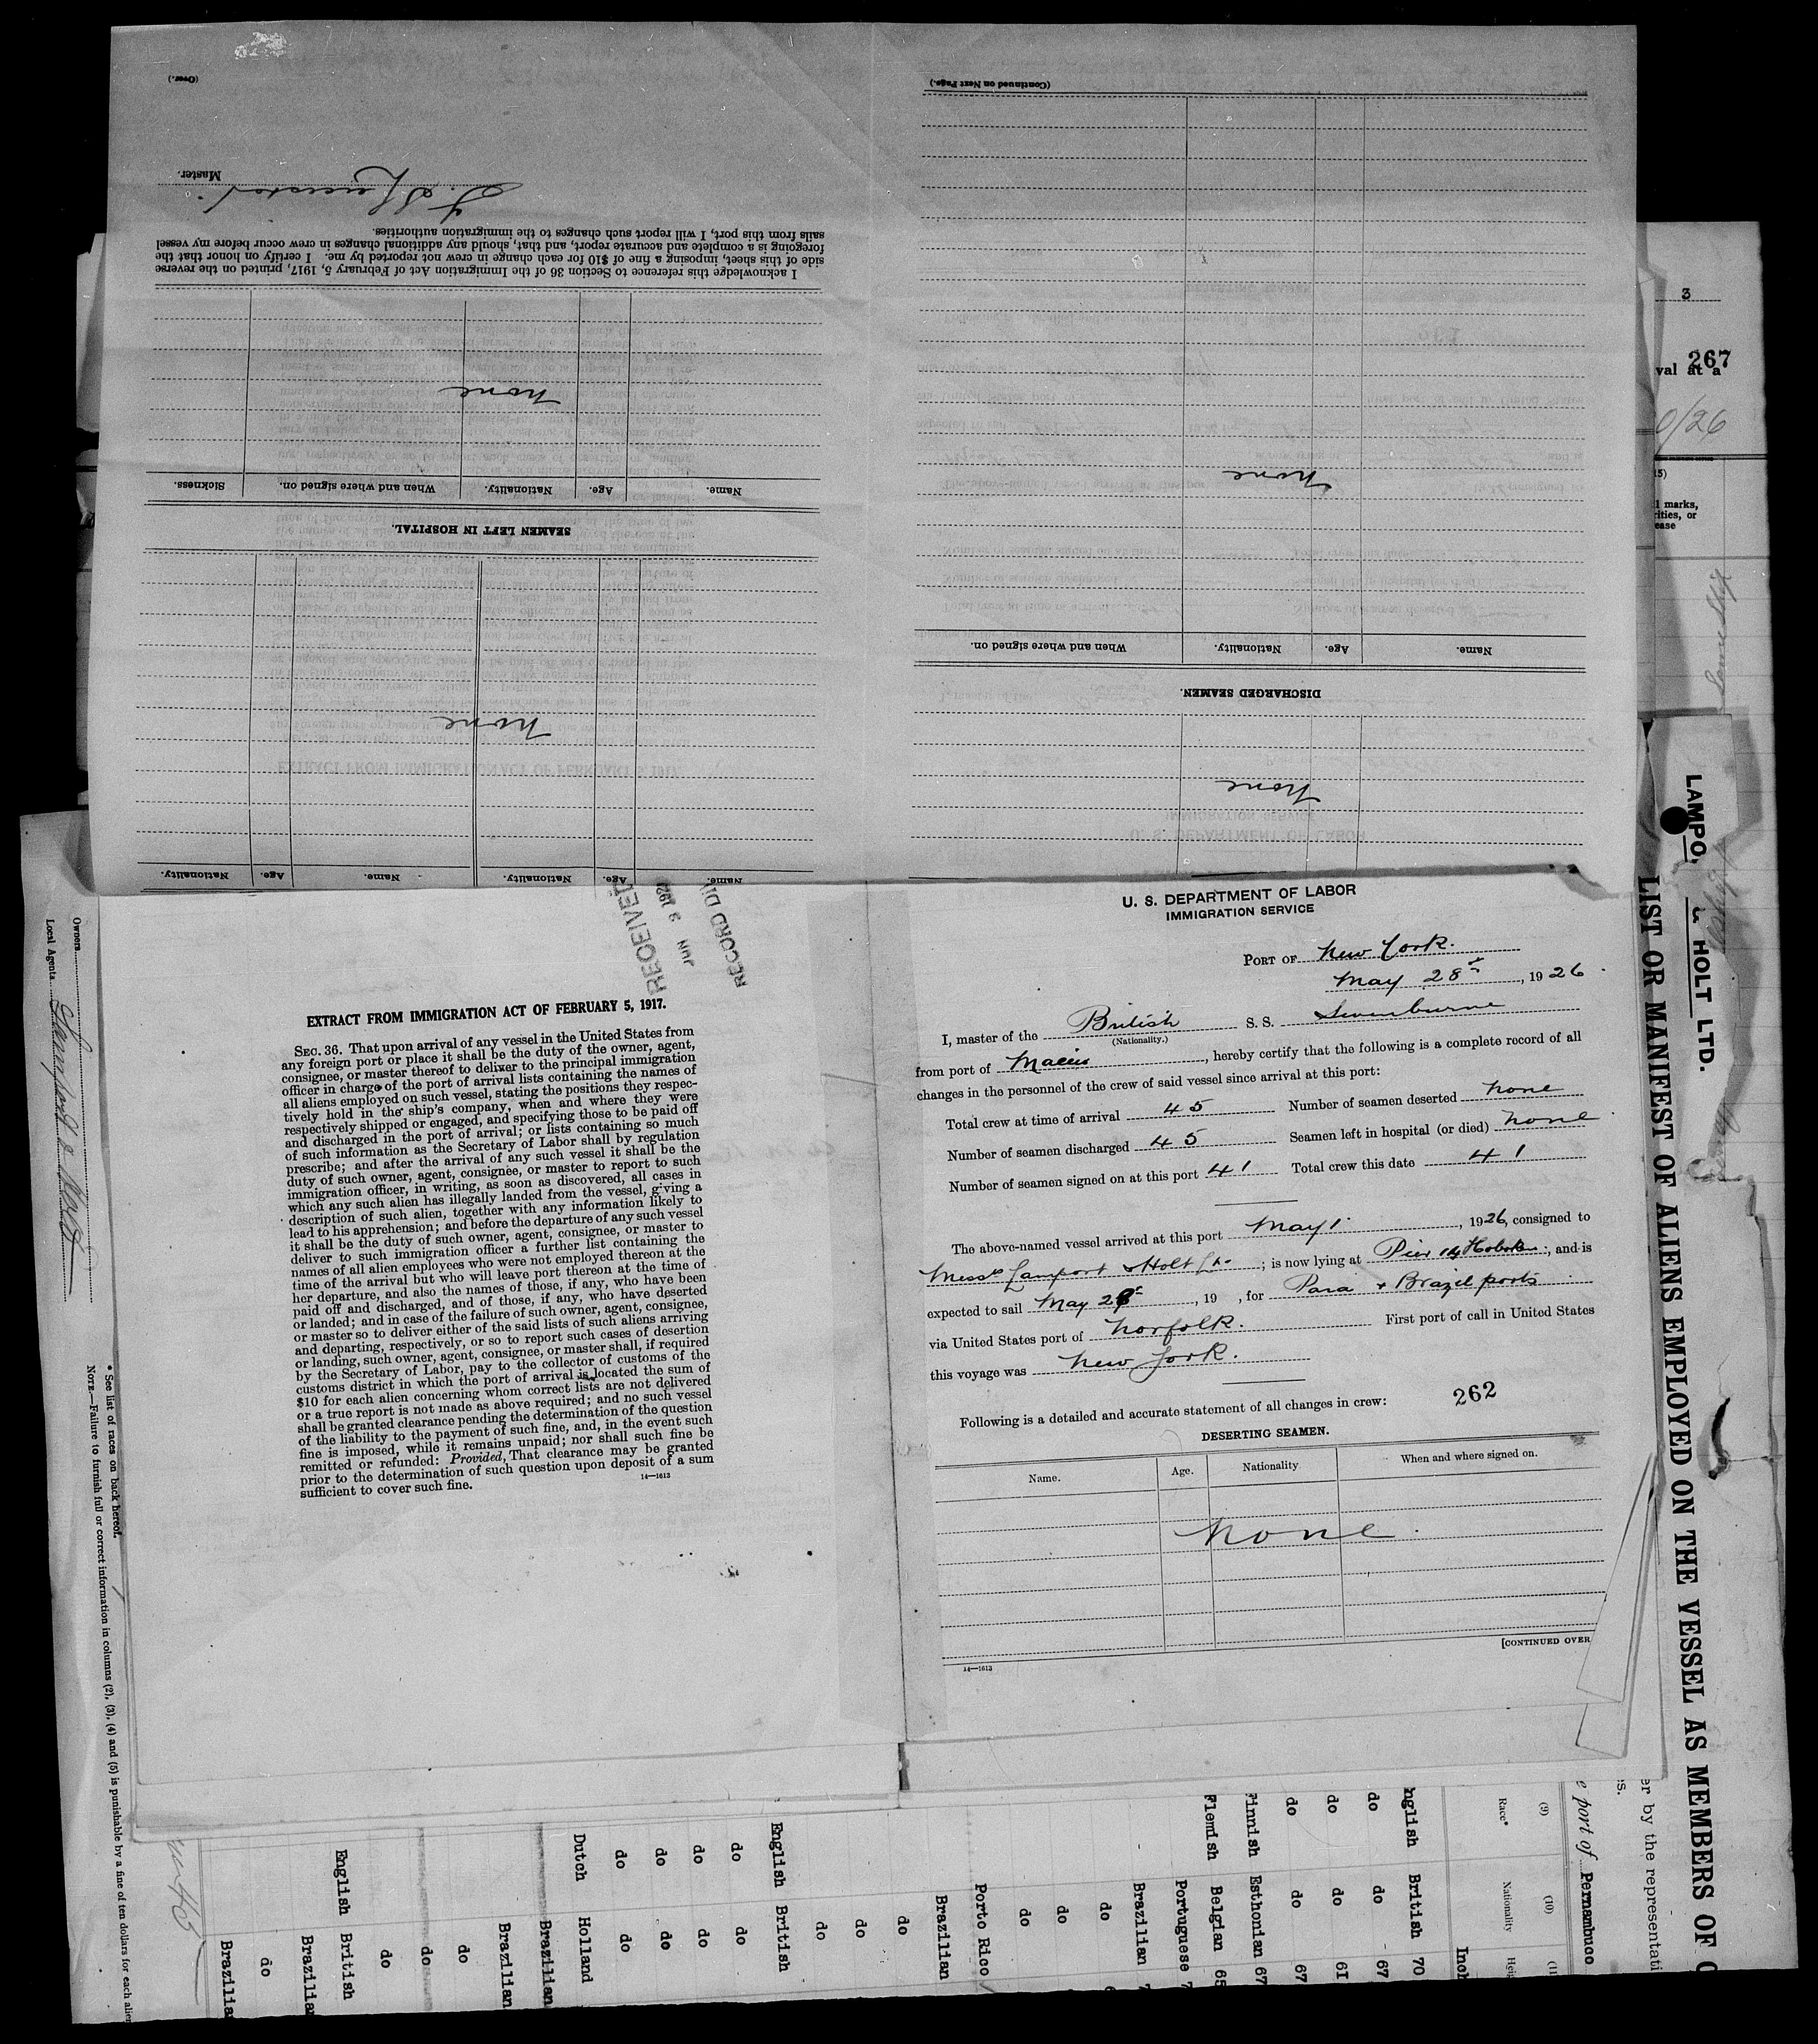 U. S. DEPARTMENT OF LABOR
IMMIGRATION SERVICE
PORT OF New York.
May 28th, 1926.
I, master of the British S. S. Swinburne
(Nationality.)
from port of Maceio, hereby certify that the following is a complete record of all
changes in the personnel of the crew of said vessel since arrival at this port:
Total crew at time of arrival 45 Number of seamen deserted none
Number of seamen discharged 45 Seamen left in hospital (or died) none
Number of seamen signed on at this port 41 Total crew this date 41
The above-named vessel arrived at this port May 1, 1926, consigned to
Messrs Lamport & Holt Ld.; is now lying at Pier 14 Hoboken, and is
expected to sail May 28th, 19 , for Para & Brazil ports
via United States port of Norfolk. First port of call in United States
this voyage was New York.
Following is a detailed and accurate statement of all changes in crew: 262
DESERTING SEAMEN.
Name. Age. Nationality When and where signed on.
none.
[CONTINUED OVER
14—1613
RECEIVED
JUN 3 192
RECORD DIV
EXTRACT FROM IMMIGRATION ACT OF FEBRUARY 5, 1917.
SEC. 36. That upon arrival of any vessel in the United States from
any foreign port or place it shall be the duty of the owner, agent,
consignee, or master thereof to deliver to the principal immigration
officer in charge of the port of arrival lists containing the names of
all aliens employed on such vessel, stating the positions they respec-
tively hold in the ship's company, when and where they were
respectively shipped or engaged, and specifying those to be paid off
and discharged in the port of arrival; or lists containing so much
of such information as the Secretary of Labor shall by regulation
prescribe; and after the arrival of any such vessel it shall be the
duty of such owner, agent, consignee, or master to report to such
immigration officer, in writing, as soon as discovered, all cases in
which any such alien has illegally landed from the vessel, giving a
description of such alien, together with any information likely to
lead to his apprehension; and before the departure of any such vessel
it shall be the duty of such owner, agent, consignee, or master to
deliver to such immigration officer a further list containing the
names of all alien employees who were not employed thereon at the
time of the arrival but who will leave port thereon at the time of
her departure, and also the names of those, if any, who have been
paid off and discharged, and of those, if any, who have deserted
or landed; and in case of the failure of such owner, agent, consignee,
or master so to deliver either of the said lists of such aliens arriving
and departing, respectively, or so to report such cases of desertion
or landing, such owner, agent, consignee, or master shall, if required
by the Secretary of Labor, pay to the collector of customs of the
customs district in which the port of arrival is located the sum of
$10 for each alien concerning whom correct lists are not delivered
or a true report is not made as above required; and no such vessel
shall be granted clearance pending the determination of the question
of the liability to the payment of such fine, and, in the event such
fine is imposed, while it remains unpaid; nor shall such fine be
remitted or refunded: Provided, That clearance may be granted
prior to the determination of such question upon deposit of a sum
sufficient to cover such fine.
14—1613
Name. Age. Nationality. Name. Age. Nationality.
none
SEAMEN LEFT IN HOSPITAL.
Name. Age. Nationality. When and where signed on. Sickness.
none
I acknowledge this reference to Section 36 of the Immigration Act of February 5, 1917, printed on the reverse
side of this sheet, imposing a fine of $10 for each change in crew not reported by me. I certify on honor that the
foregoing is a complete and accurate report, and that, should any additional changes in crew occur before my vessel
sails from this port, I will report such changes to the immigration authorities.
Master.
(Over.)
none
DISCHARGED SEAMEN.
Name. Age. Nationality. When and where signed on.
none
(Continued on Next Page.)
3
267
val at a
0/26
l marks,
rities, or
ease
LAMPO & HOLT LTD.
LIST OR MANIFEST OF ALIENS EMPLOYED ON THE VESSEL AS MEMBERS OF C
er by the representati
e port of Pernambuco
(9) (10) (11
Race* Nationality Heig
Inch
nglish British 70
do do 67
do do 61
do do 67
Finnish Esthonian 67
Flemish Belgian 65
Portuguese 7
Brazilian 7
do
do
do
Porto Rico
Brazilian
do
do
do
English British
do do
do do
do do
do do
Dutch Holland
Brazilian
Brazilian
do
do
do
English British
Brazilian
do
Brazilia
Owners
Local Agents Lamport & Holt
* See list of races on back hereof.
NOTE.—Failure to furnish full or correct information in columns (2), (3), (4) and (5) is punishable by a fine of ten dollars for each alien